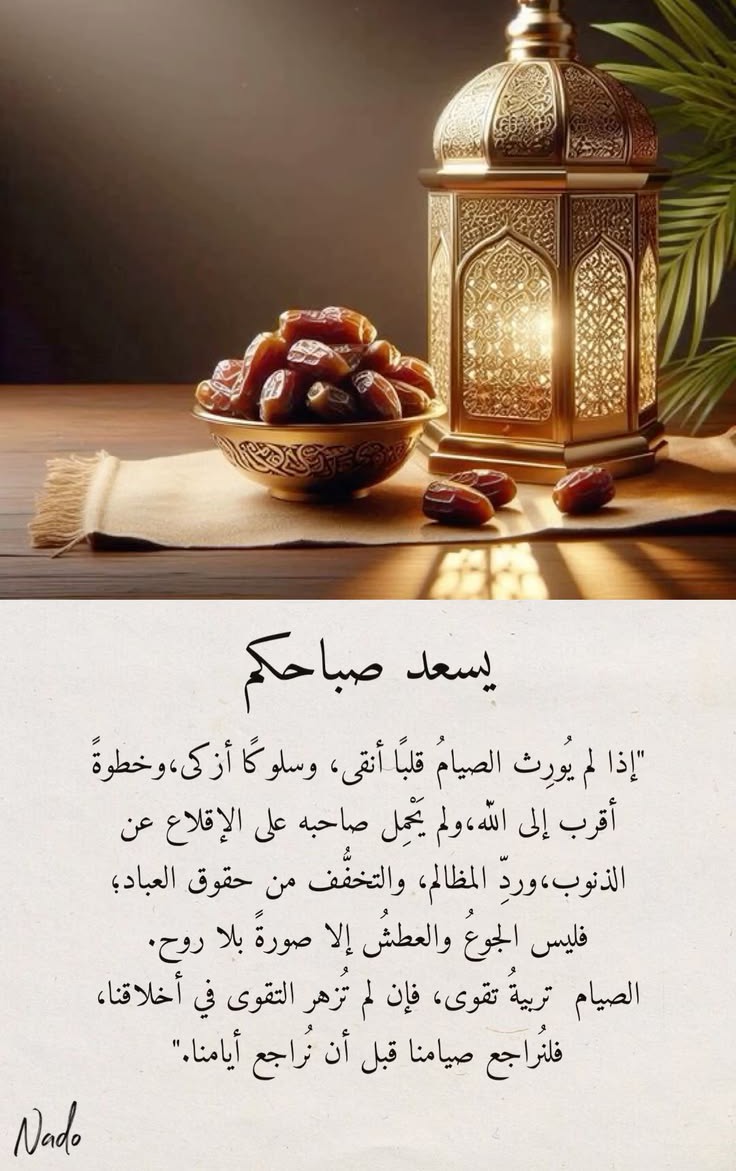 يسعد صباحكم
"إذا لم يُورِث الصيامُ قلبًا أنقى، وسلوكًا أزكى،وخطوةً
أقرب إلى الله،ولم يَحْمِل صاحبه على الإقلاع عن
الذنوب،وردِّ المظالم، والتخفُّف من حقوق العباد؛
فليس الجوعُ والعطشُ إلا صورةً بلا روح.
الصيام تربيةُ تقوى، فإن لم تُزهر التقوى في أخلاقنا،
فلنُراجع صيامنا قبل أن نُراجع أيامنا."
Nado